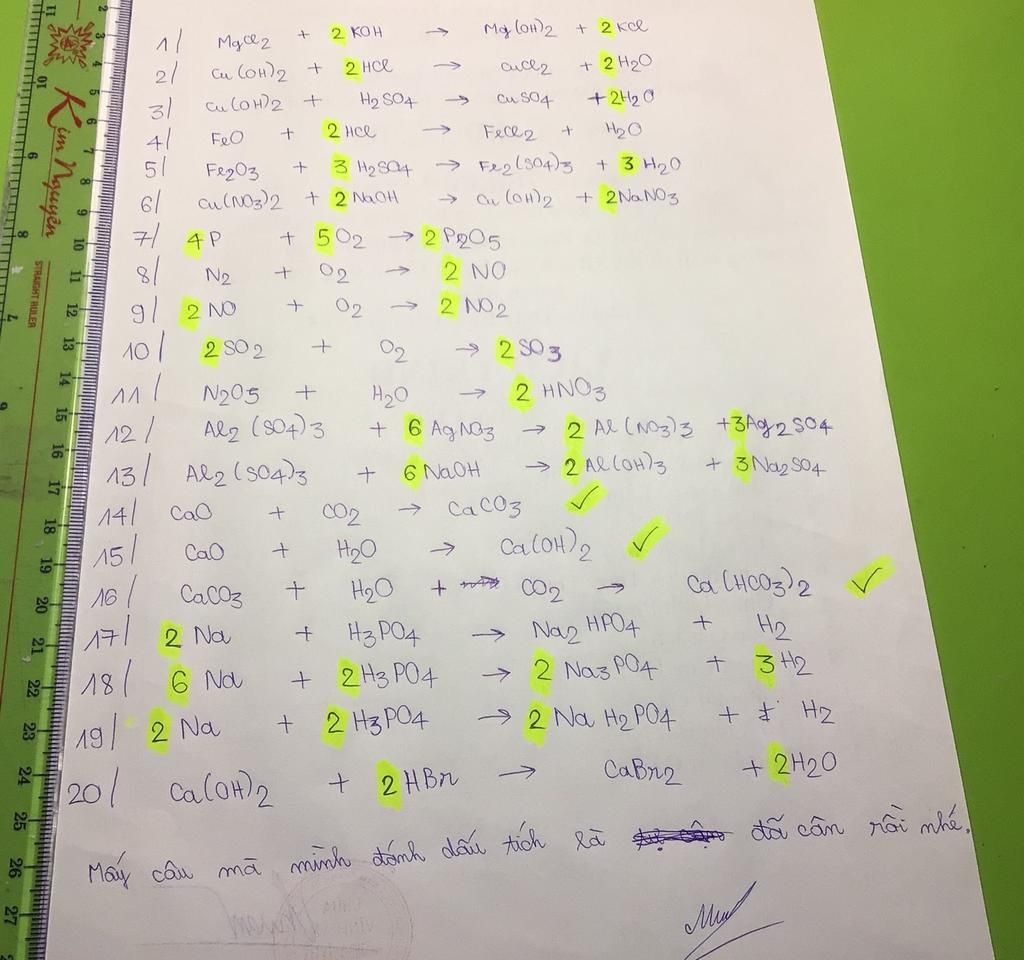 1/ MgCl2 + 2KOH → Mg(OH)2 + 2KCl
2/ Cu(OH)2 + 2HCl → CuCl2 + 2H2O
3/ Cu(OH)2 + H2SO4 → CuSO4 + 2H2O
4/ FeO + 2HCl → FeCl2 + H2O
5/ Fe2O3 + 3H2SO4 → Fe2(SO4)3 + 3H2O
6/ Cu(NO3)2 + 2NaOH → Cu(OH)2 + 2NaNO3
7/ 4P + 5O2 → 2P2O5
8/ N2 + O2 → 2NO
9/ 2NO + O2 → 2NO2
10/ 2SO2 + O2 → 2SO3
11/ N2O5 + H2O → 2HNO3
12/ Al2(SO4)3 + 6AgNO3 → 2Al(NO3)3 + 3Ag2SO4
13/ Al2(SO4)3 + 6NaOH → 2Al(OH)3 + 3Na2SO4
14/ CaO + CO2 → CaCO3 ✓
15/ CaO + H2O → Ca(OH)2 ✓
16/ CaCO3 + H2O + CO2 → Ca(HCO3)2 ✓
17/ 2Na + H3PO4 → Na2HPO4 + H2
18/ 6Na + 2H3PO4 → 2Na3PO4 + 3H2
19/ 2Na + 2H3PO4 → 2NaH2PO4 + H2
20/ Ca(OH)2 + 2HBr → CaBr2 + 2H2O
Mấy câu mà mình đánh dấu tích là đã cân rồi nhé.
Kim Nguyên
STRAIGHT RULER
2
3
4
5
6
7
8
9
10
11
12
13
14
15
16
17
18
19
20
21
22
23
24
25
26
27
11
10
9
8
7
6